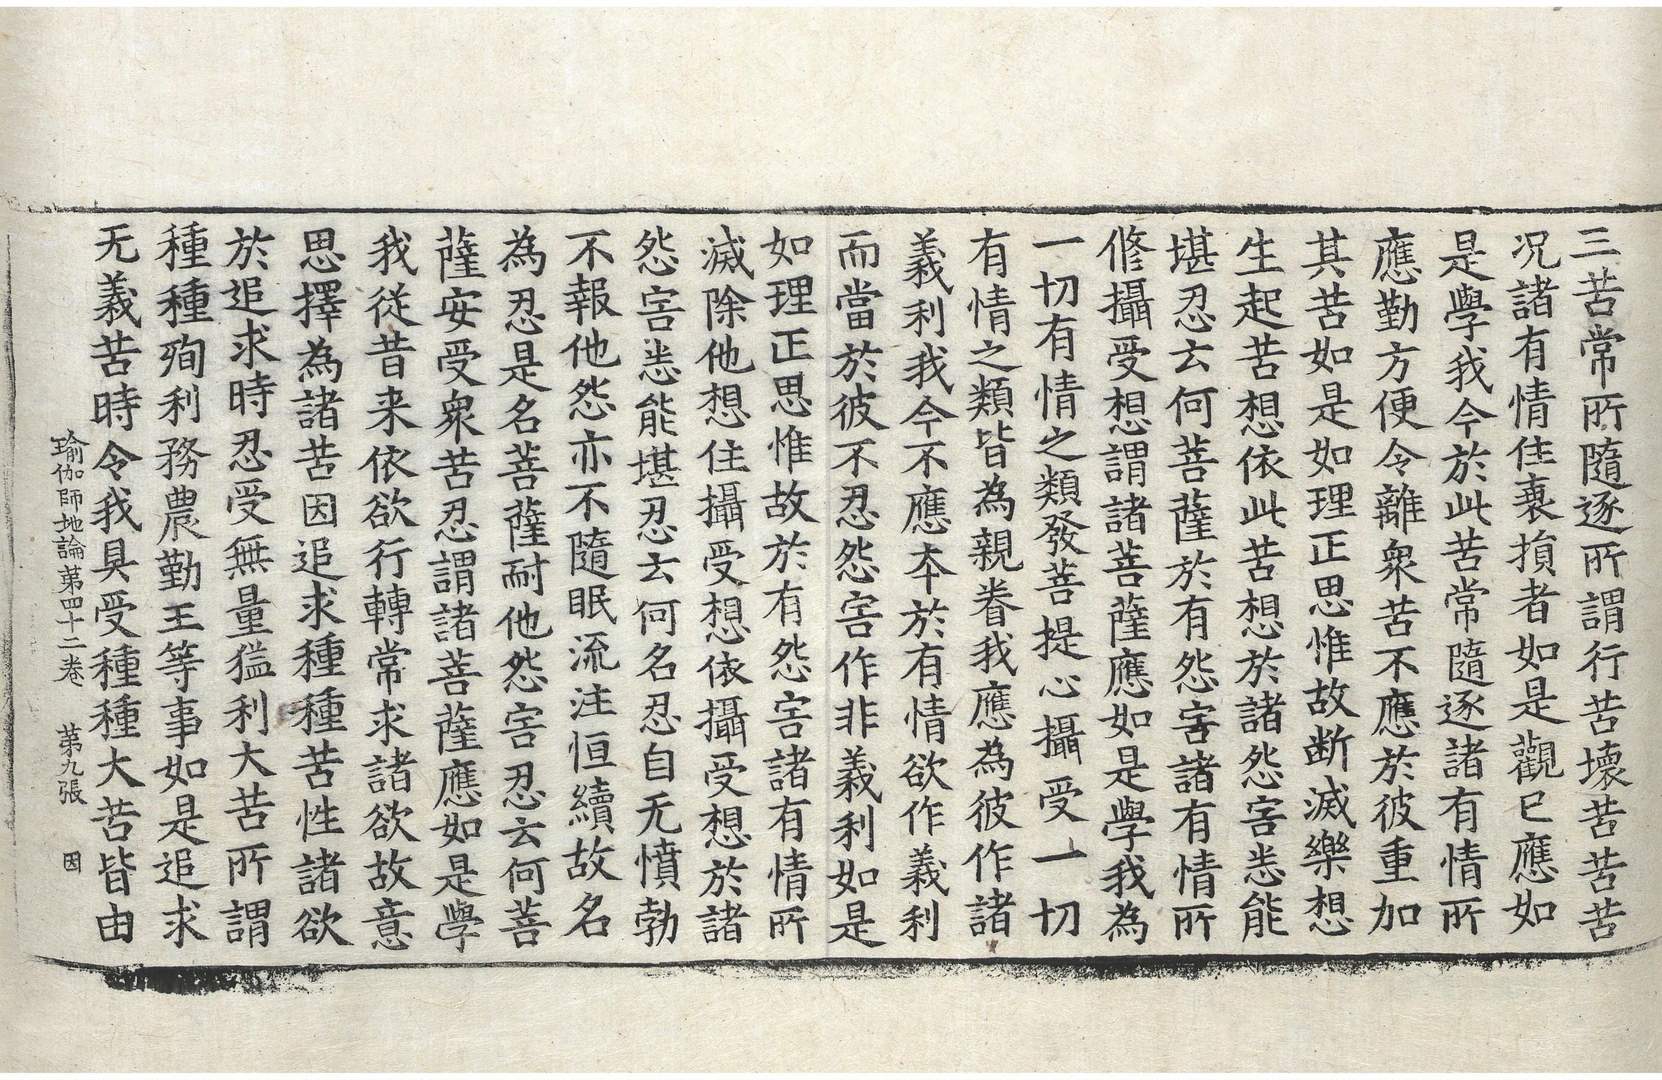 三苦常所隨逐所謂行苦壞苦苦苦
况諸有情住衰損者如是觀已應如
是學我今於此苦常隨逐諸有情所
應勤方便令離衆苦不應於彼重加
其苦如是如理正思惟故断滅樂想
生起苦想依此苦想於諸怨害悉能
堪忍云何菩薩於有怨害諸有情所
修攝受想謂諸菩薩應如是學我為
一切有情之類發菩提心攝受一切
有情之類皆為親眷我應為彼作諸
義利我今不應夲於有情欲作義利
而當於彼不忍怨害作非義利如是
如理正思惟故於有怨害諸有情所
滅除他想住攝受想依攝受想於諸
怨害悉能堪忍云何名忍自无憤勃
不報他怨亦不隨眠流注恒續故名
為忍是名菩薩耐他怨害忍云何菩
薩安受衆苦忍謂諸菩薩應如是學
我従昔来依欲行轉常求諸欲故意
思擇為諸苦因追求種種苦性諸欲
於追求時忍受無量猛利大苦所謂
種種殉利務農勤王等事如是追求
无義苦時令我具受種種大苦皆由
瑜伽師地論第四十二卷　第九張　因